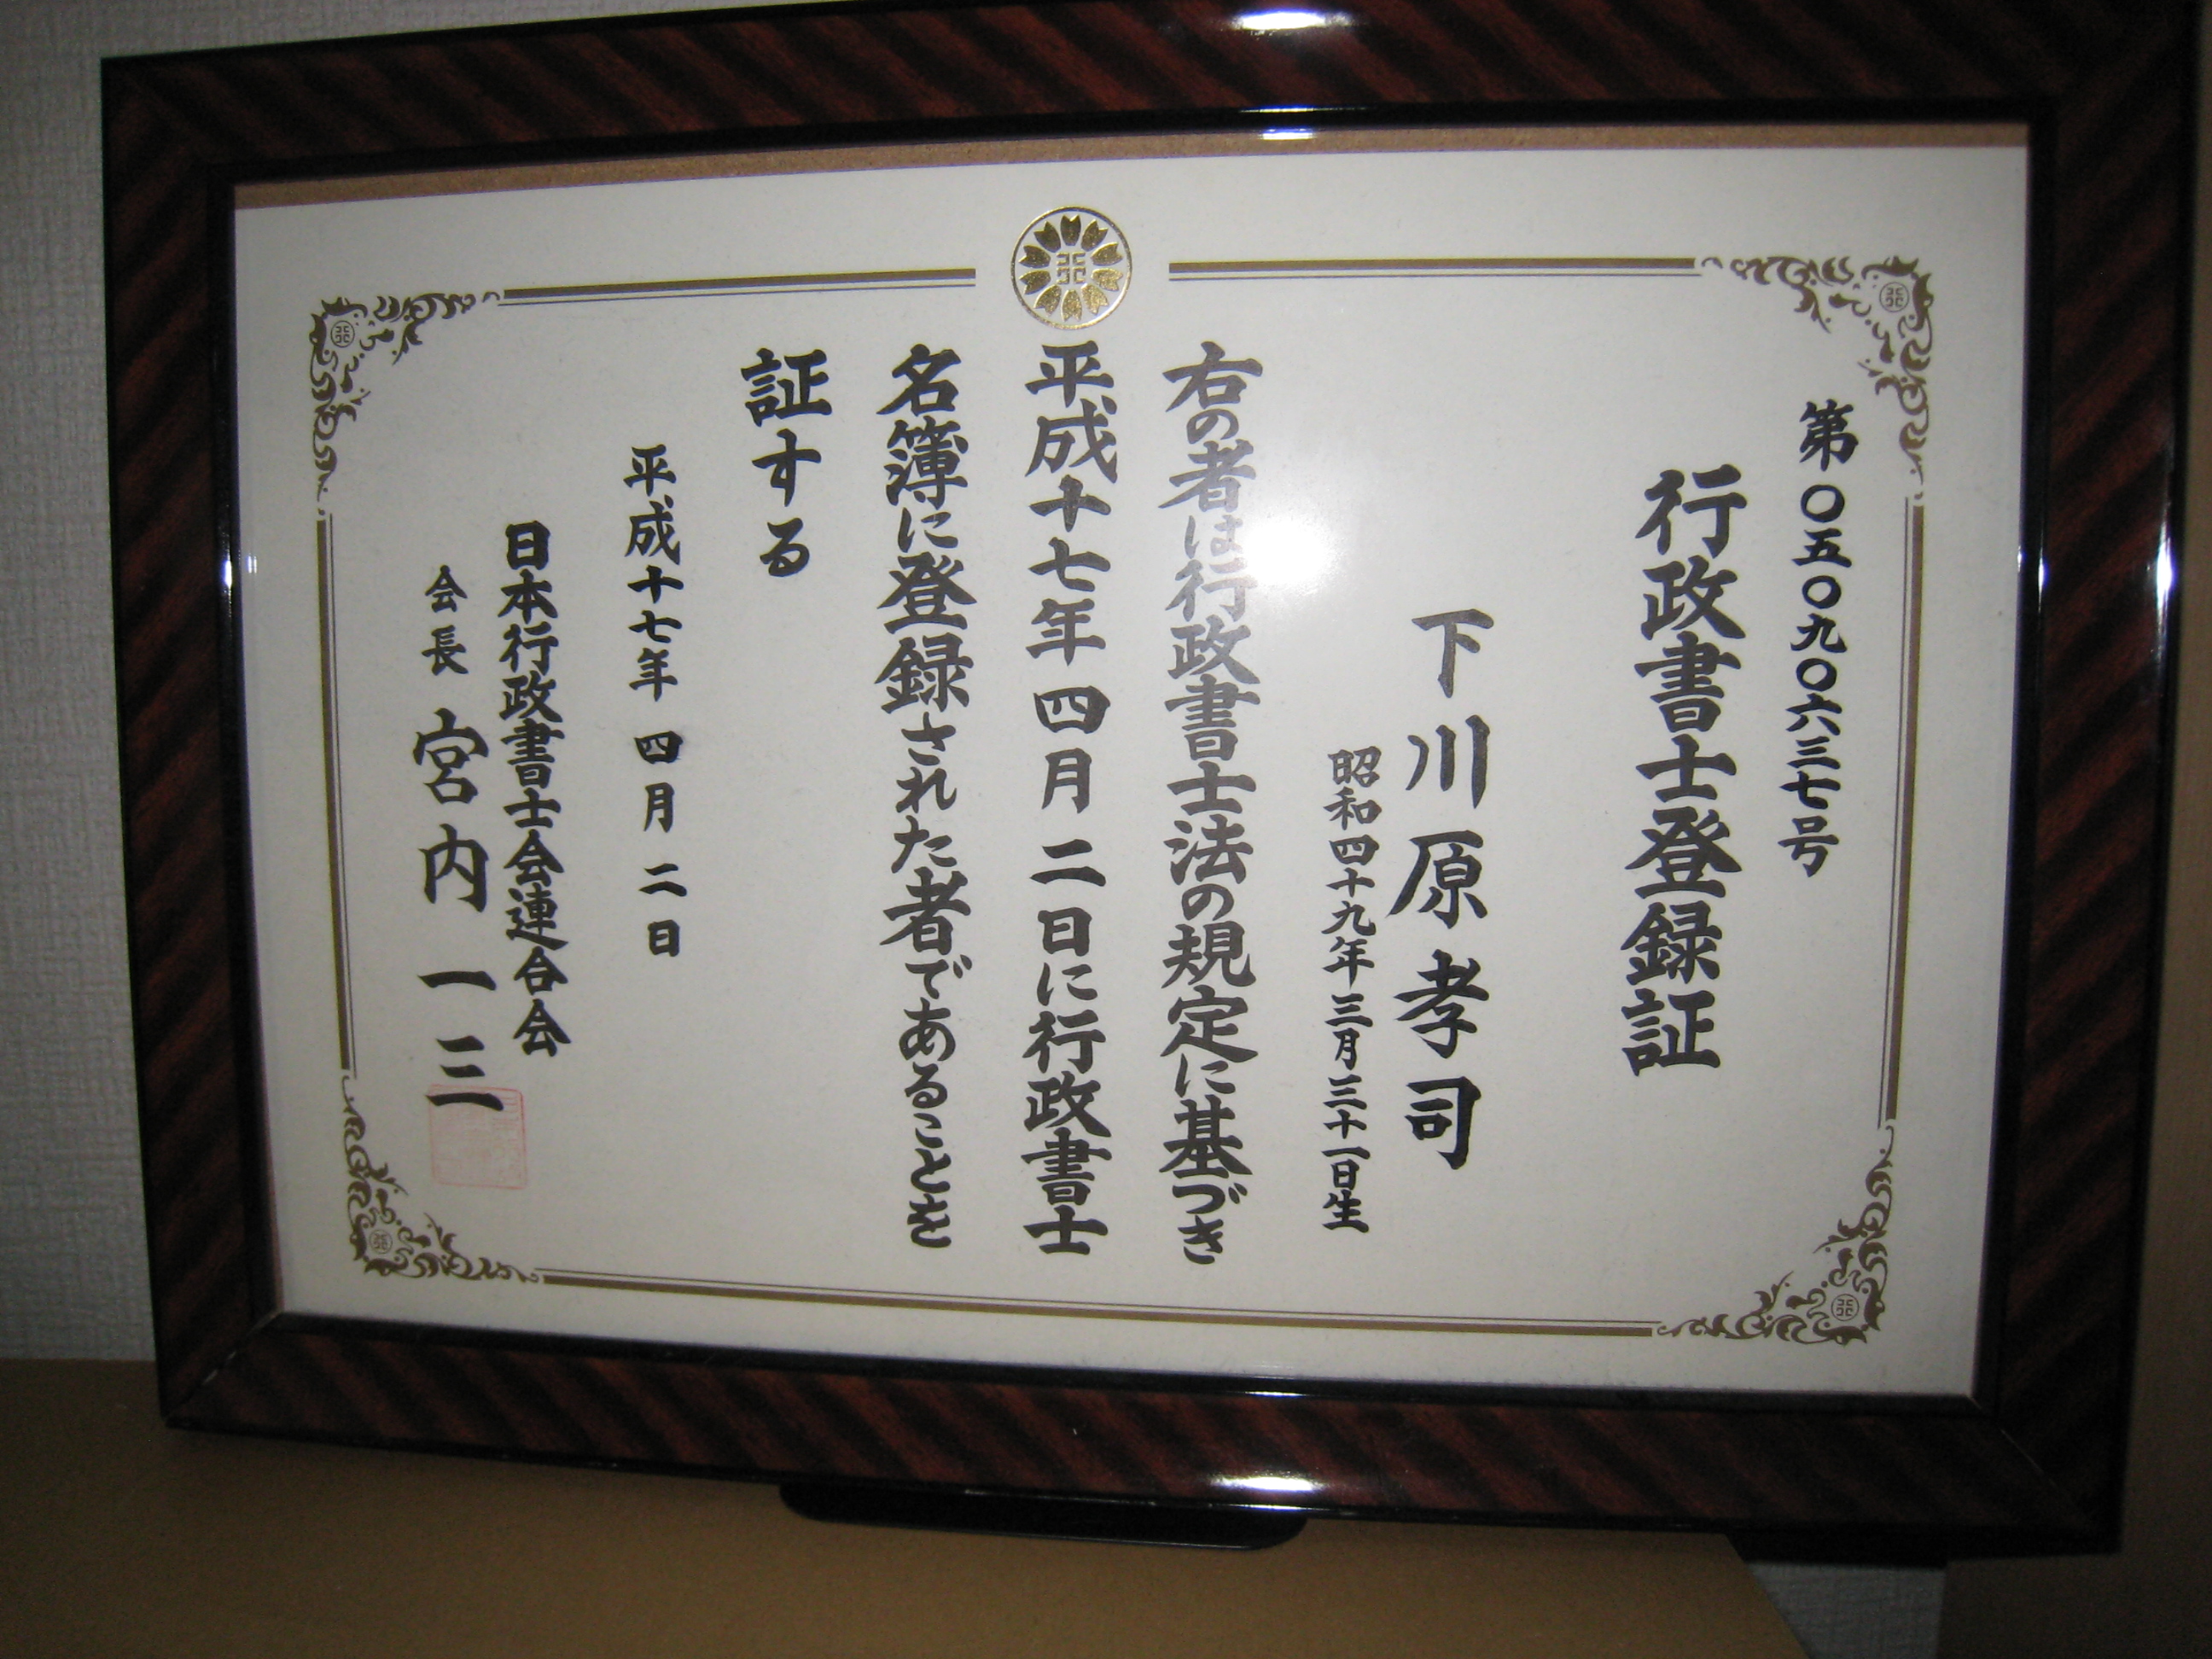 第〇五〇九〇六三七号
行政書士登録証
下川原孝司
昭和四十九年三月三十一日生
右の者は行政書士法の規定に基づき
平成十七年四月二日に行政書士
名簿に登録された者であることを
証する
平成十七年四月二日
日本行政書士会連合会
会長 宮内一三